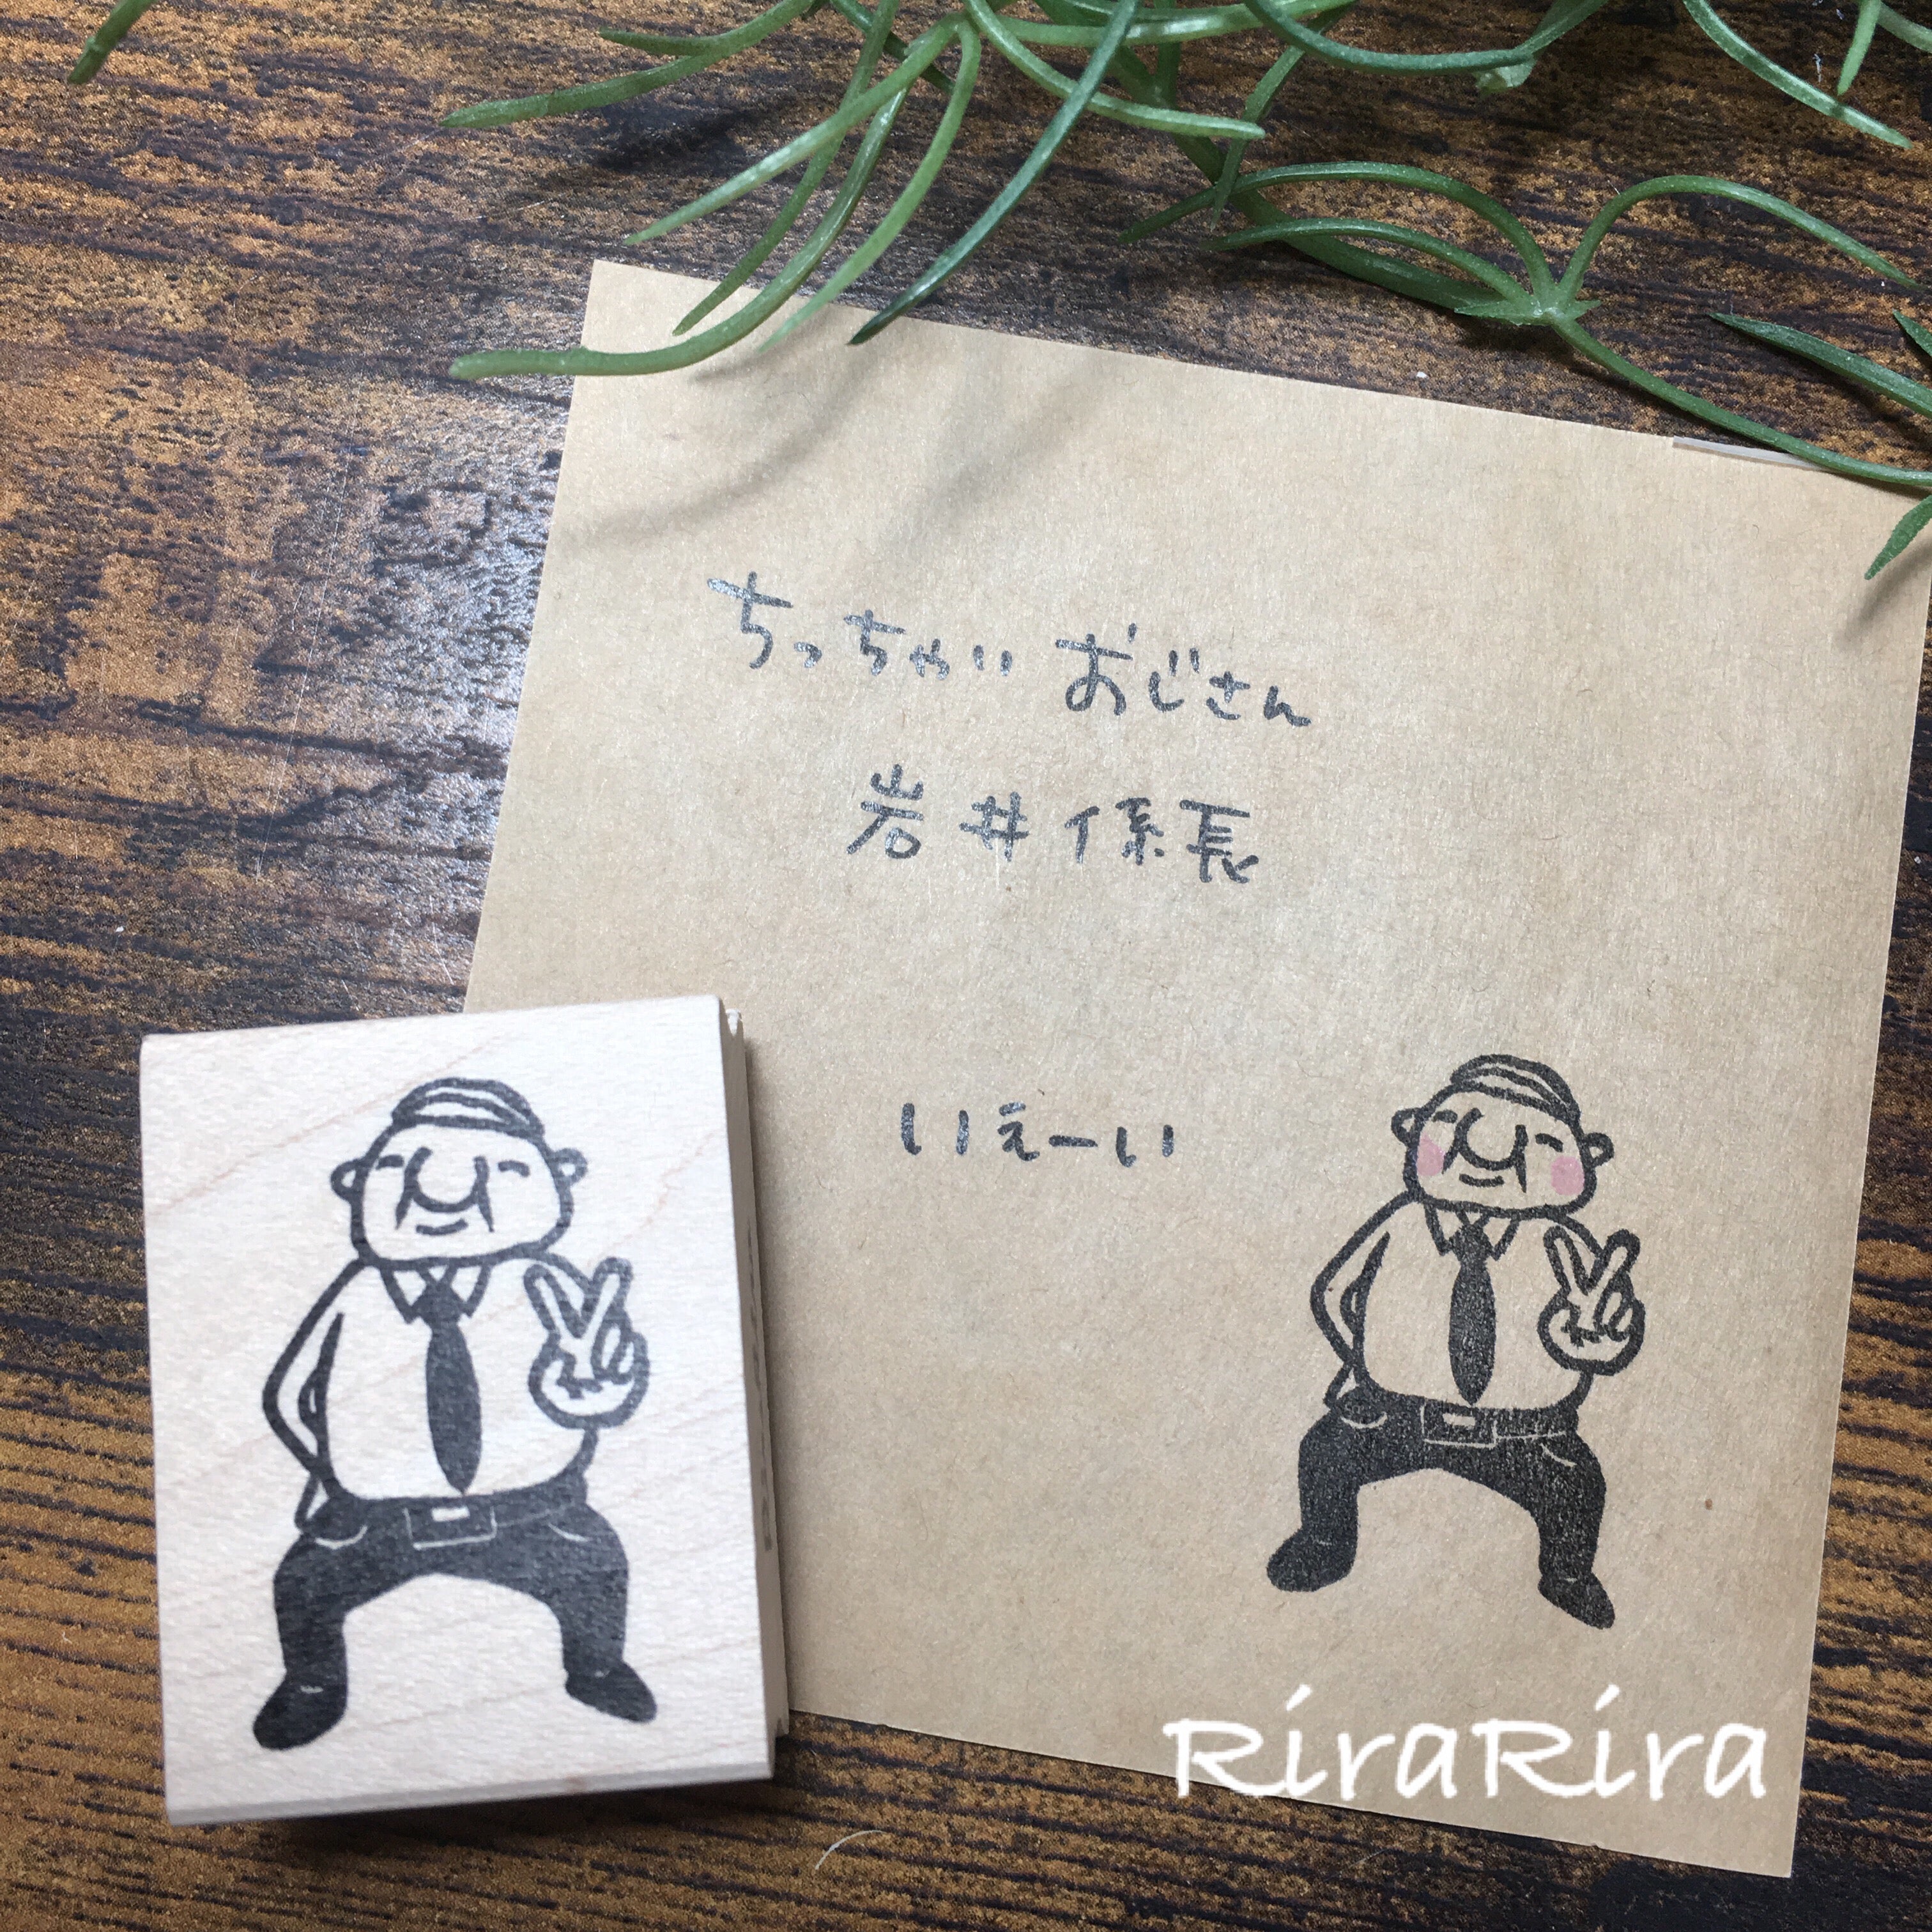 ちっちゃいおじさん
岩井係長
いえーい
RiraRira